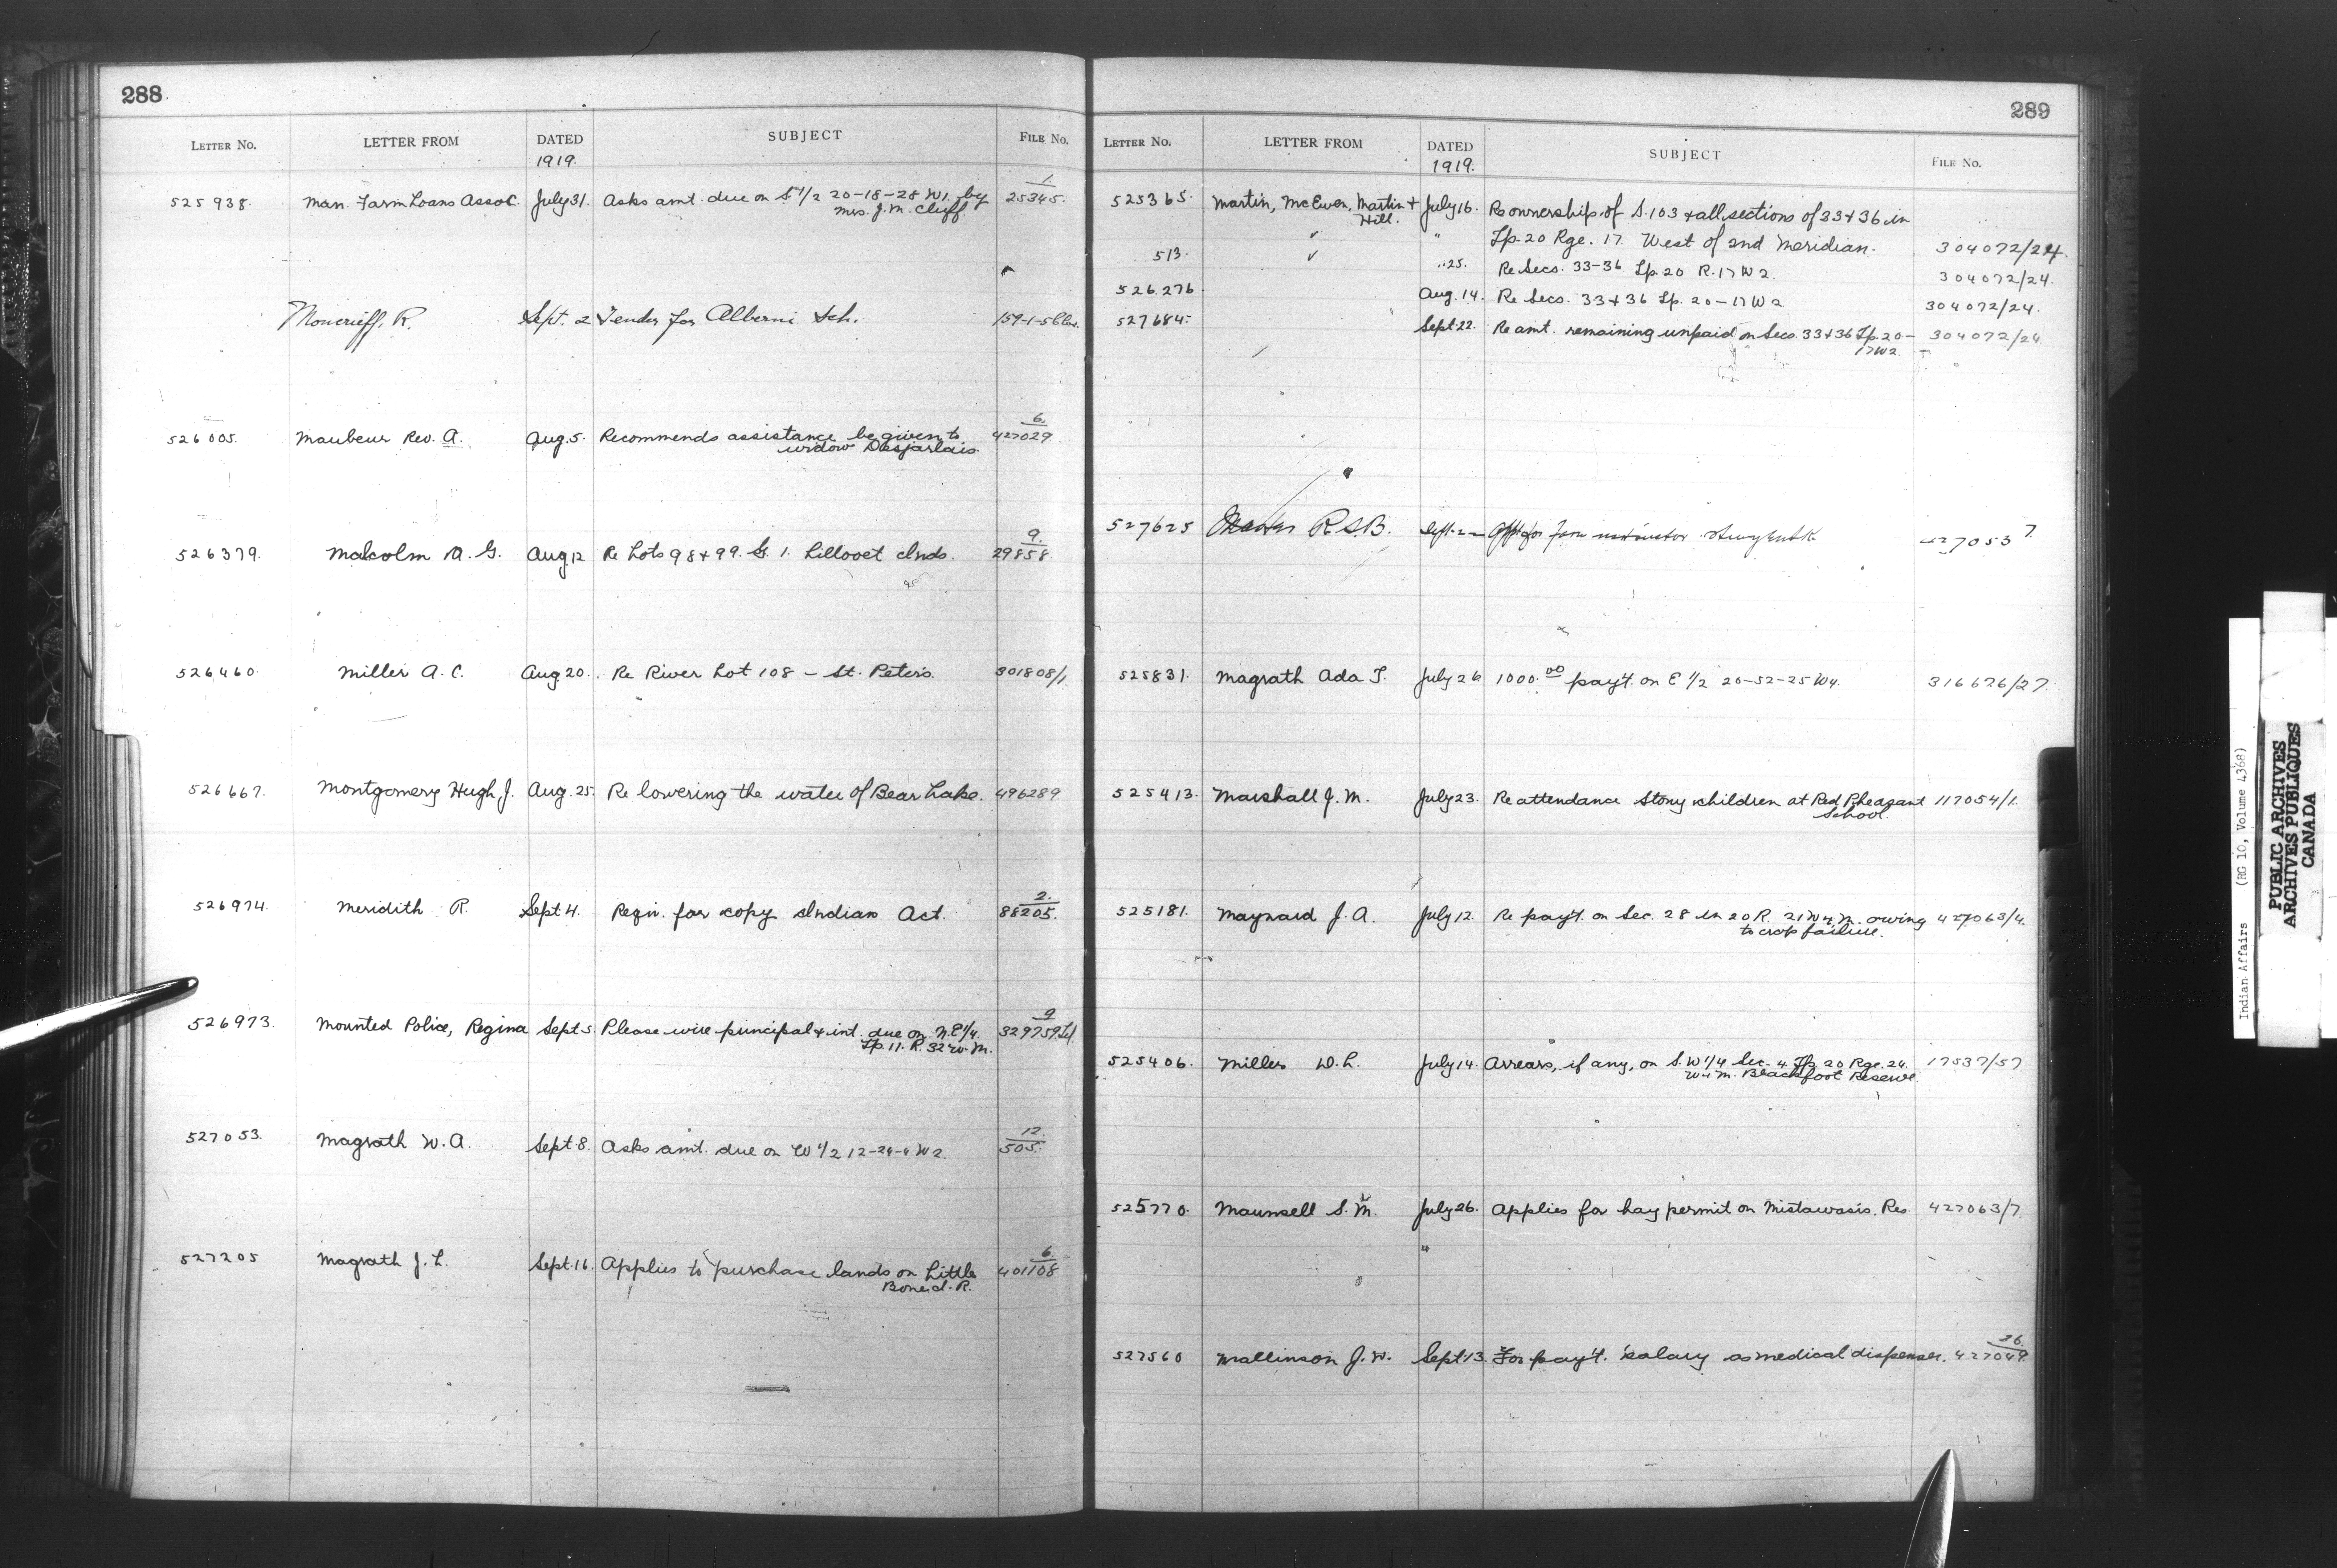 288
LETTER No. LETTER FROM DATED SUBJECT FILE No.
1919.
525938. Man. Farm Loans Assoc. July 31. Asks amt. due on S 1/2 20-18-28 W1. by 1. 25345.
Mrs. J. M. Cluff.
Moncrieff, R. Sept. 2 Tender for Alberni Sch. 159-1-5
526005. Maubeur Rev. A. Aug. 5. Recommends assistance be given to 6. 427029
widow Desjarlais.
526379. Malcolm A. G. Aug 12 Re Lots 98 + 99. G. 1. Lillooet Inds. 9. 29858.
526460. Miller A. C. Aug 20. Re River Lot 108 - St. Peters. 301808/1
526667. Montgomery Hugh J. Aug. 25. Re lowering the water of Bear Lake. 496289
526974. Meridith R. Sept 4. Reqn. for copy Indian Act. 2. 88205.
526973. Mounted Police, Regina Sept 5 Please wire principal + int. due on N.E 1/4. 9 329759
Tp. 11. R. 32 W. M.
527053. Magrath W. A. Sept 8. Asks amt. due on W 1/2 12-24-4 W2. 12. 505.
527205 Magrath J. L. Sept. 16. Applies to purchase lands on Little 6. 401108
Bone I. R.
289
LETTER No. LETTER FROM DATED SUBJECT FILE No.
1919.
525365. Martin, McEwen, Martin + July 16. Re ownership of S. 103 + all sections of 33 + 36 in
Hill. " Tp. 20 Rge. 17 West of 2nd Meridian. 304072/24.
513. " 25. Re Secs. 33-36 Tp. 20 R. 17 W2. 304072/24.
526276. Aug. 14. Re Secs. 33 + 36 Tp. 20-17 W2 304072/24.
527684. Sept. 22. Re amt. remaining unpaid on Secs. 33 + 36 Tp. 20- 304072/24
17 W2.
527625 R.S.B. Sept. 2 for farm instructor 427053 7.
525831. Magrath Ada T. July 26 1000.00 pay't. on E 1/2 20-52-25 W4. 316626/27.
525413. Marshall J. M. July 23. Re attendance Stony children at Red Pheasant 117054/1.
School.
525181. Maynard J. A. July 12. Re pay't. on Sec. 28 in 20 R. 21 W 4 M. owing 427063/4.
to crop failure.
525406. Miller D. L. July 14. Arrears, if any, on S.W 1/4 Sec. 4 Tp. 20 Rge. 24. 17537/57
W 4 M. Blackfoot Reserve.
525770. Maunsell S. M. July 26. Applies for hay permit on Mistawasis. Res. 427063/7
527560 Mallinson J. W. Sept. 13. For pay't. salary as medical dispenser. 26. 427049.
Indian Affairs (RG 10, Volume 4368)
PUBLIC ARCHIVES
ARCHIVES PUBLIQUES
CANADA